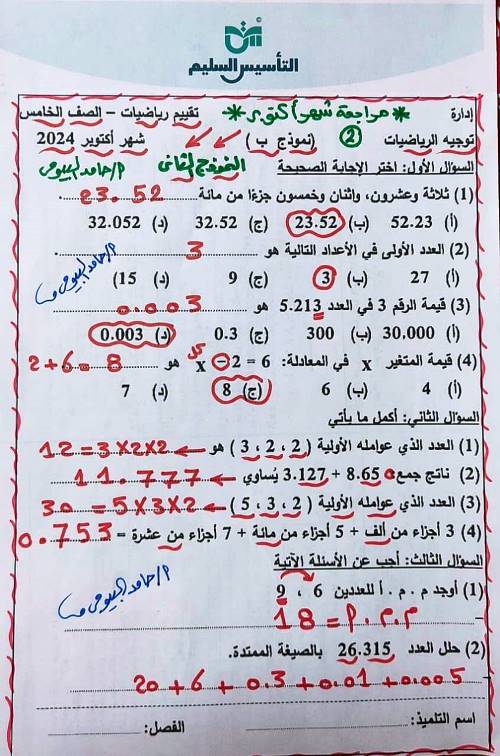 التأسيس السليم
إدارة * مراجعة شهر أكتوبر * تقييم رياضيات – الصف الخامس
توجيه الرياضيات 2 (نموذج ب) شهر أكتوبر 2024
السؤال الأول: اختر الإجابة الصحيحة النموذج الثاني م/حامد البيومي
(1) ثلاثة وعشرون، واثنان وخمسون جزءًا من مائة 23.52
(أ) 52.23 (ب) 23.52 (ج) 32.52 (د) 32.052
(2) العدد الأولى في الأعداد التالية هو 3
(أ) 27 (ب) 3 (ج) 9 (د) 15)
م/حامد البيومي
(3) قيمة الرقم 3 في العدد 5.213 هو 0.003
(أ) 30,000 (ب) 300 (ج) 0.3 (د) 0.003
(4) قيمة المتغير x في المعادلة: x – 2 = 6 هو 2+6=8
(أ) 4 (ب) 6 (ج) 8 (د) 7
السؤال الثاني: أكمل ما يأتي
(1) العدد الذي عوامله الأولية (2 ، 2 ، 3) هو 12=3×2×2
(2) ناتج جمع 8.65 + 3.127 يُساوي 11.777
(3) العدد الذي عوامله الأولية (2 ، 3 ، 5) 30=5×3×2
(4) 3 أجزاء من ألف + 5 أجزاء من مائة + 7 أجزاء من عشرة = 0.753
السؤال الثالث: أجب عن الأسئلة الآتية
(1) أوجد م . م . أ للعددين 6 ، 9
م.م.أ = 18
م/حامد البيومي
(2) حلل العدد 26.315 بالصيغة الممتدة.
20+6+0.3+0.01+0.005
اسم التلميذ: الفصل: